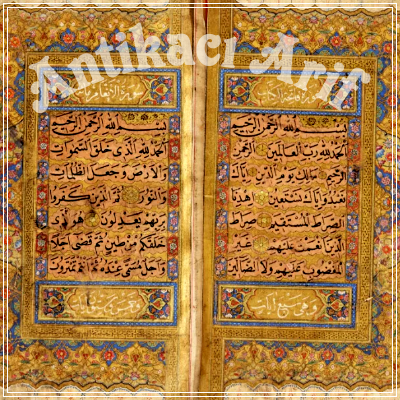 Antikacı Arif
بسم الله الرحمن الرحيم
الحمد لله رب العالمين الرحمن
الرحيم مالك يوم الدين اياك
نعبد واياك نستعين اهدنا
الصراط المستقيم صراط
الذين انعمت عليهم غير
المغضوب عليهم ولا الضالين
وهي سبع آيات
سورة الانعام
بسم الله الرحمن الرحيم
الحمد لله الذي خلق السموات
والارض وجعل الظلمات
والنور ثم الذين كفروا
بربهم يعدلون هو الذي
خلقكم من طين ثم قضى اجلا
واجل مسمى عنده ثم انتم تمترون